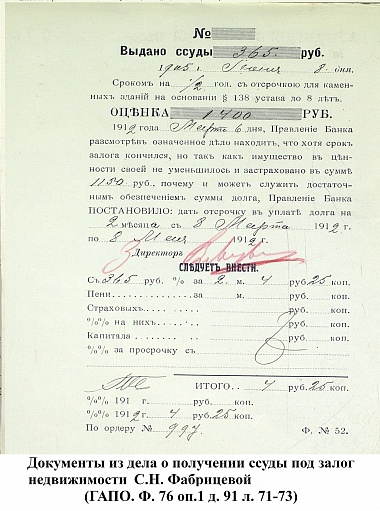 №
Выдано ссуды 365 руб.
1905 г. Июня 8 дня.
Срокомъ на 1/2 год. съ отсрочкою для камен-
ныхъ зданій на основаніи § 138 устава до 8 лѣтъ.
ОЦѢНКА 1400 РУБ.
1912 года Марта 6 дня, Правленіе Банка
разсмотрѣвъ означенное дѣло находитъ, что хотя срокъ
залога кончился, но такъ какъ имущество въ цѣн-
ности своей не уменьшилось и застраховано въ суммѣ
1150 руб., почему и можетъ служить достаточ-
нымъ обезпеченіемъ суммы долга, Правленіе Банка
ПОСТАНОВИЛО: дать отсрочку въ уплатѣ долга на
2 мѣсяца съ 8 Марта 1912 г.
по 8 Мая 1912 г.
Директоръ
СЛѢДУЕТЪ ВНЕСТИ.
Съ 365 руб. % за 2 м. 4 руб. 25 коп.
Пени руб. коп.
Страховыхъ руб. коп.
%% на нихъ руб. коп.
Капитала руб. коп.
%% за просрочку съ
ИТОГО 4 руб. 25 коп.
%% 191 г. руб. коп.
%% 1912 г. 4 руб. 25 коп.
По ордеру № 997. Ф. № 52.
Документы из дела о получении ссуды под залог
недвижимости С.Н. Фабрицевой
(ГАПО. Ф. 76 оп.1 д. 91 л. 71-73)